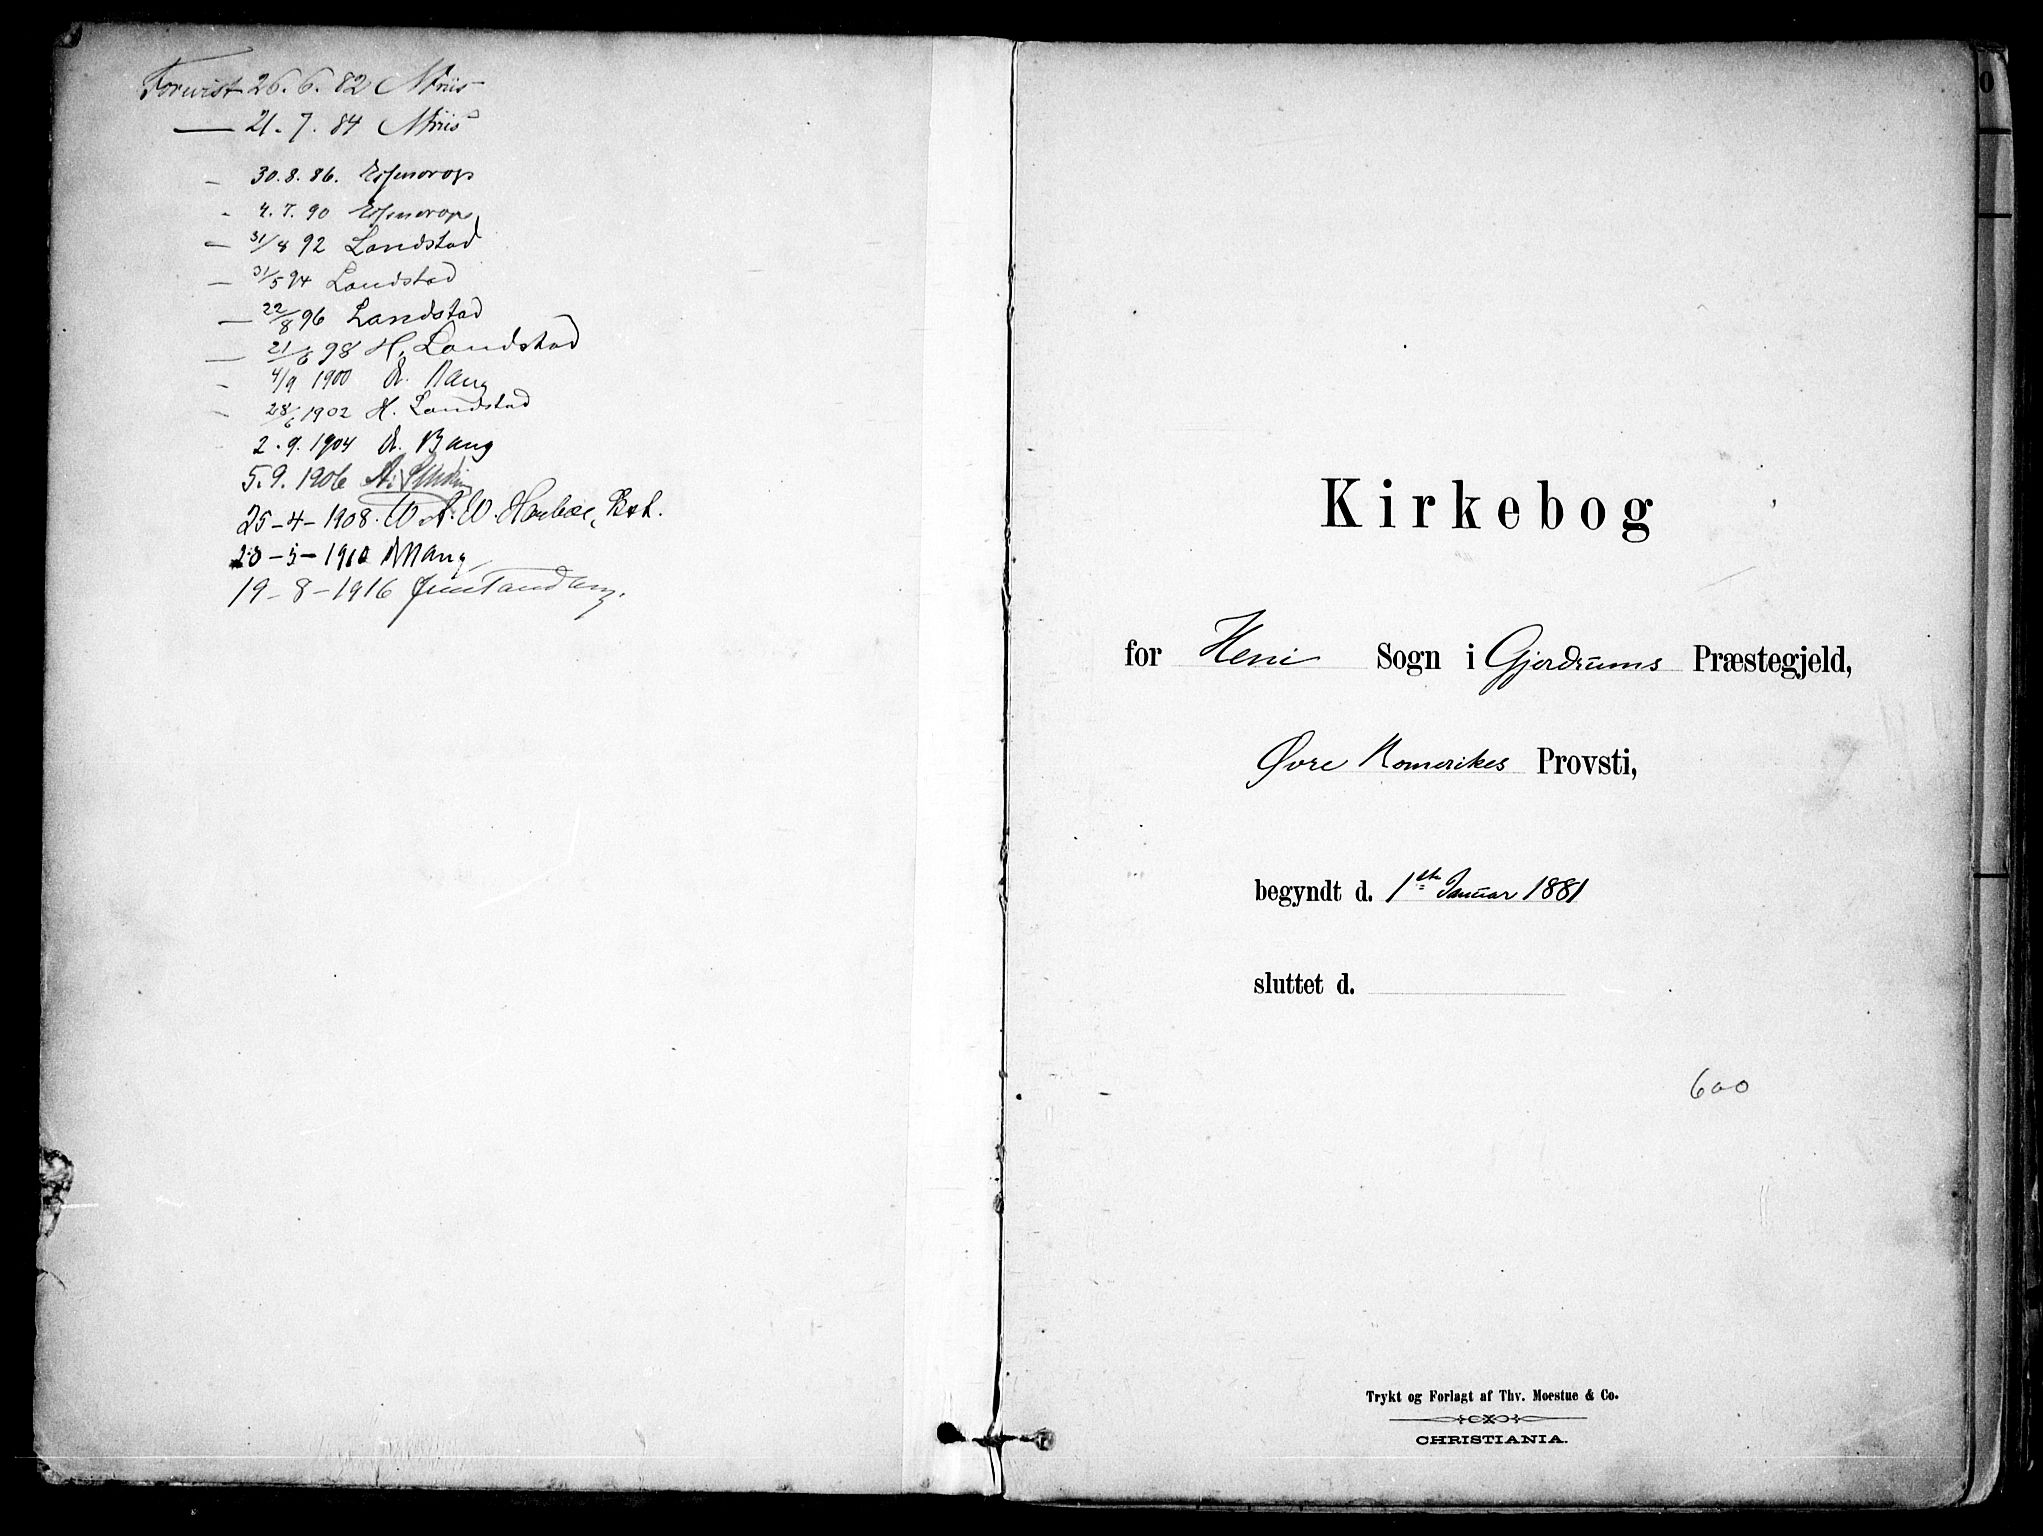 Forevist 26. 6. 82 NFriis
— 21. 7. 84 NFriis
— 30. 8. 86. Essendrop
- 4. 7. 90 Essendrop
— 31/8 92 Landstad
— 31/5 94 Landstad
— 22/8 96 Landstad
— 21/6 98 H. Landstad
- 4/9 1900 A. Bang
- 28/6 1902 H. Landstad
2. 9. 1904 A. Bang
5. 9. 1906
25-4-1908.
-5-1910 A Bang
19-8-1916 Jens Tandberg.
Kirkebog
for Heni Sogn i Gjerdrums Præstegjeld,
Øvre Romerikes Provsti,
begyndt d. 1ste Januar 1881
sluttet d.
600
Trykt og Forlagt af Thv. Moestue & Co.
CHRISTIANIA.